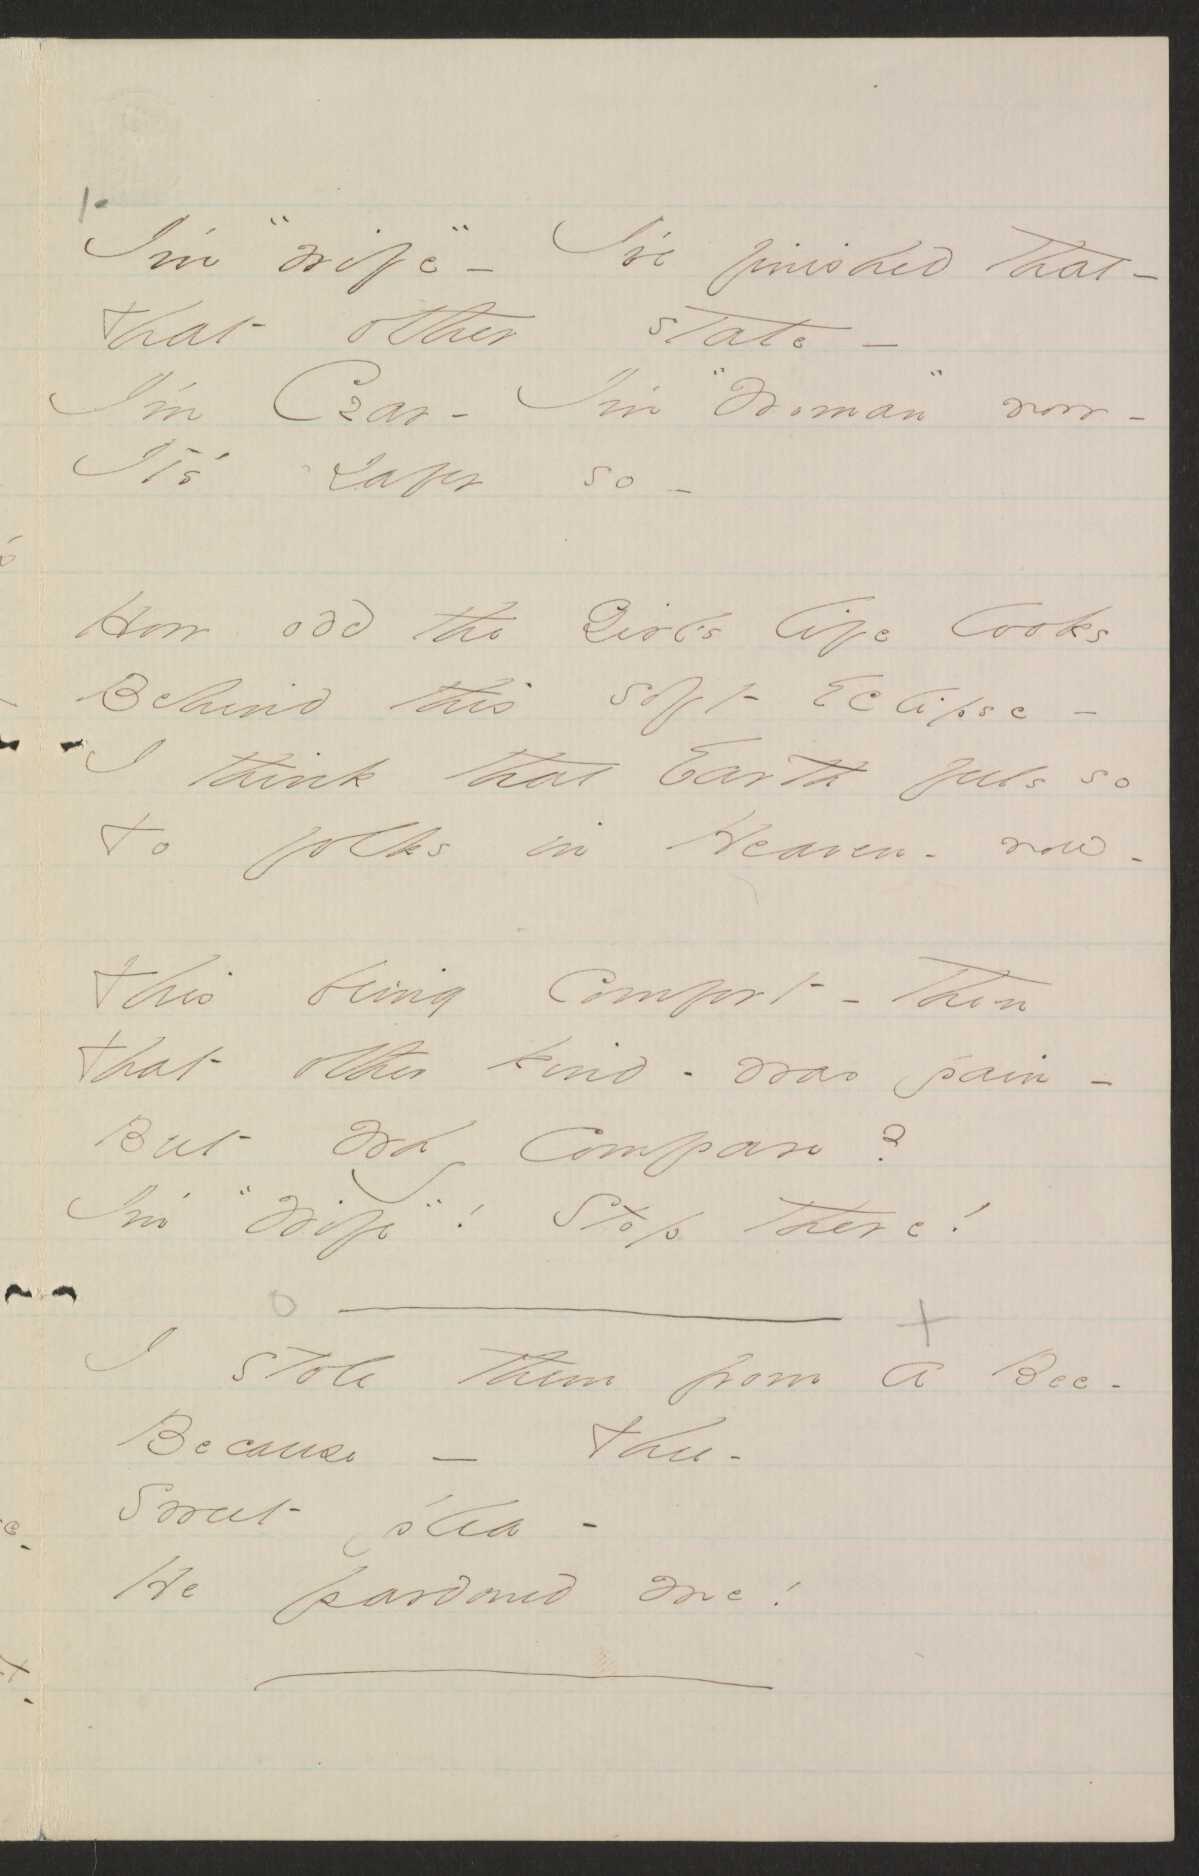 1.
I'm "wife" - I've finished that -
That other state -
I'm Czar - I'm "Woman" now -
It's safer so -
How odd the Girl's life looks
Behind this soft Eclipse -
I think that Earth feels so
To folks in Heaven - now -
This being comfort - then
That other kind - was pain -
But why compare?
I'm "Wife"! Stop there!
I stole them from a Bee -
Because - Thee -
Sweet plea -
He pardoned me!